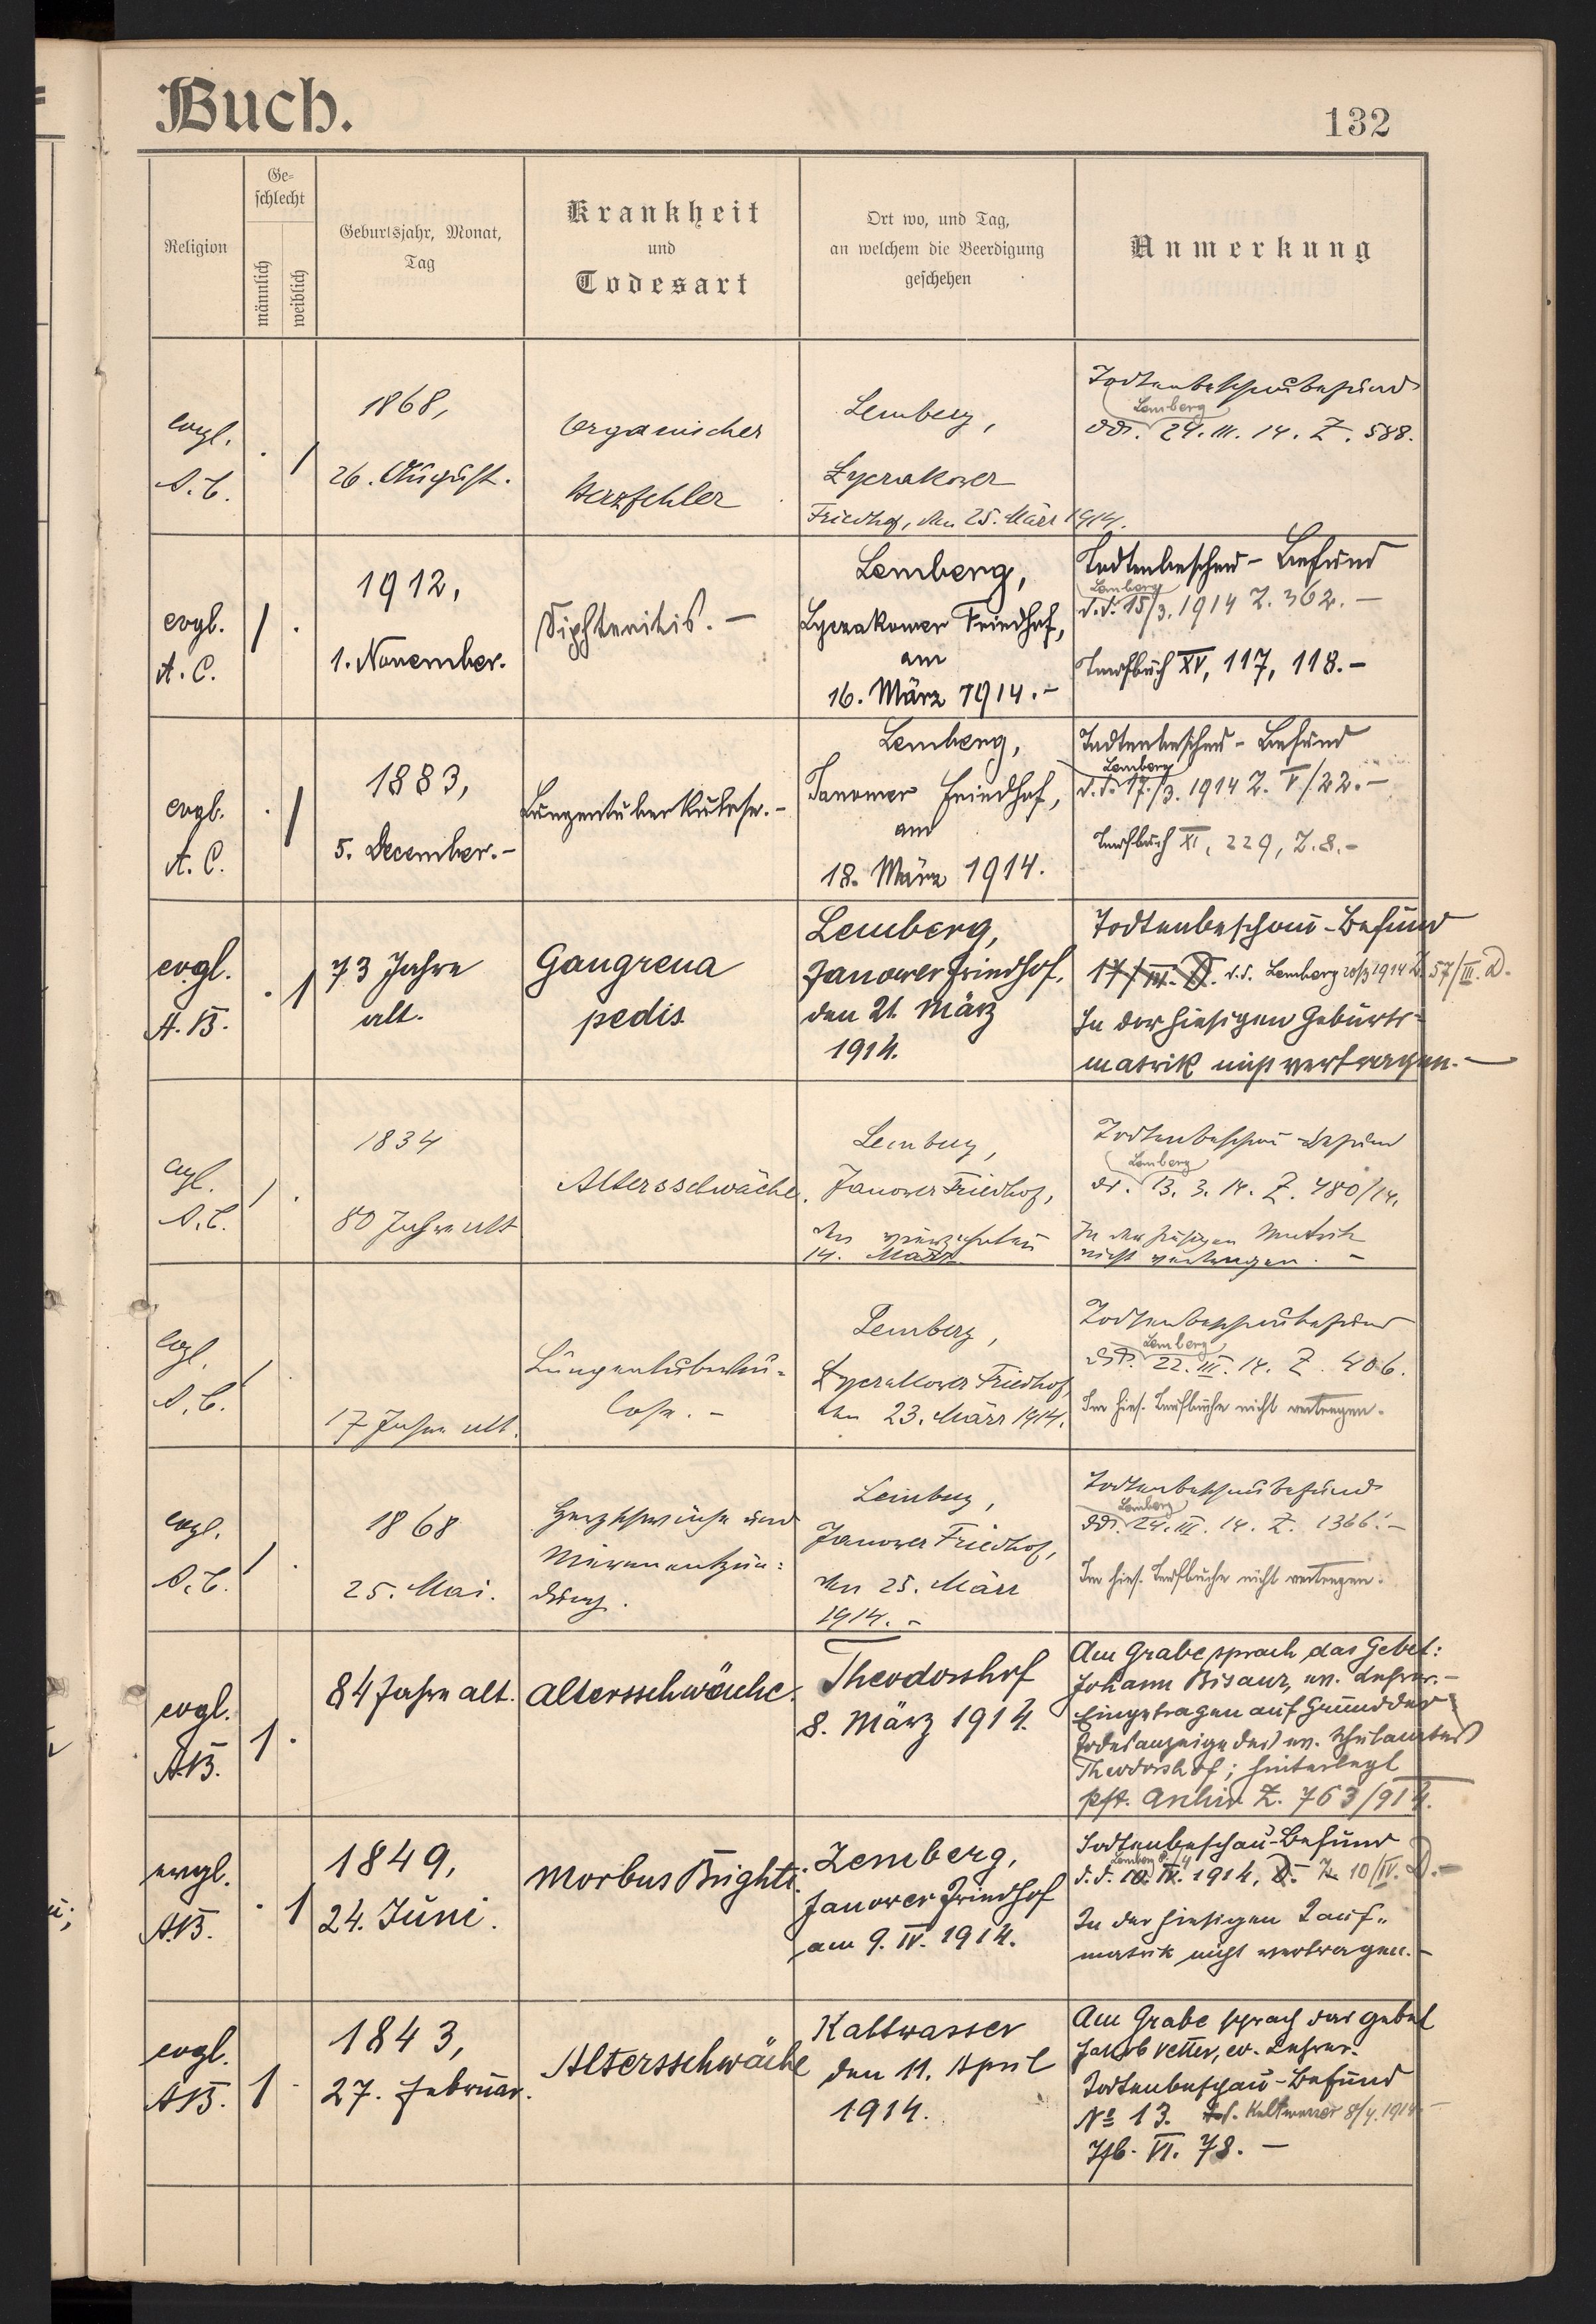 Buch.
132
Religion
Ge-
schlecht
männlich
weiblich
Geburtsjahr, Monat,
Tag
Krankheit
und
Todesart
Ort wo, und Tag,
an welchem die Beerdigung
geschehen
Anmerkung
evgl.
A.C.
. /
1868,
26. August.
Organischer
Herzfehler
Lemberg,
Lyczakower
Friedhof, den 25. März 1914.
Todtenbeschaubefund
Lemberg
dd. 24. III. 14. Z. 588.
evgl.
A. C.
/ .
1912,
1. November.
Diphteritis. —
Lemberg,
Lyczakower Friedhof,
am
16. März 1914. -
Todtenbeschau - Befund
Lemberg
d. d. 15/3. 1914 Z. 362. —
Taufbuch XV, 117, 118. -
evgl.
A. C.
. /
1883,
5. December. -
Lungentuberkulose. -
Lemberg,
Janower Friedhof,
am
18. März 1914.
Todtenbeschau - Befund
Lemberg
d. d. 17./3. 1914 Z. V/22. -
Taufbuch XI, 229, Z. 8. -
evgl.
A. B.
. 1
73 Jahre
alt.
Gangrena
pedis
Lemberg,
Janower Friedhof,
den 21. März
1914.
Todtenbeschau - Befund
d. d. Lemberg 20/3 1914 Z. 57/III. D.
In der hiesigen Geburts-
matrik nicht vertragen. —
evgl.
A. C.
/ .
1834
80 Jahre alt
Altersschwäche.
Lemberg,
Janower Friedhof,
den vierzehnten
14. März
Todtenbeschau - Befund
Lemberg
dd. 13. 3. 14. Z. 480/14.
In der hiesigen Matrik
nicht vertragen. -
evgl.
A. C.
/ .
17 Jahre alt.
Lungentuberku-
lose. -
Lemberg,
Lyczakower Friedhof,
den 23. März 1914.
Todtenbeschaubefund
Lemberg
dd. 22. III. 14. Z. 406.
Im hies. Taufbuche nicht vertragen.
evgl.
A. C.
/ .
1868
25. Mai.
Herzschwäche und
Nierenentzün-
dung.
Lemberg,
Janower Friedhof,
den 25. März
1914. -
Todtenbeschaubefund
Lemberg
dd. 24. III. 14. Z. 1366. -
Im hies. Taufbuche nicht vertragen.
evgl.
A.B.
1 .
84 Jahre alt.
Altersschwäche.
Theodorshof
8. März 1914.
Am Grabe sprach das Gebet:
Johann Bisanz, ev. Lehrer. -
Eingetragen auf Grund der
Todesanzeige des ev. Schulamtes
Theodorshof; hinterlegt
Pft. Archiv Z. 763/914.
evgl.
A.B.
. 1
1849,
24. Juni.
Morbus Brighti.
Lemberg,
Janower Friedhof
am 9. IV. 1914.
Todtenbeschau - Befund
Lemberg
d. d. 1914, Z. 10/IV. D. -
In der hiesigen Tauf-
matrik nicht vertragen. -
evgl.
A.B.
1 .
1843,
27. Februar.
Altersschwäche
Kaltwasser
den 11. April
1914.
Am Grabe sprach das Gebet
Jakob Vetter, ev. Lehrer.
Todtenbeschau - Befund
No 13. Kaltwasser 8/4. 1914 -
Tfb. VI. 78. —